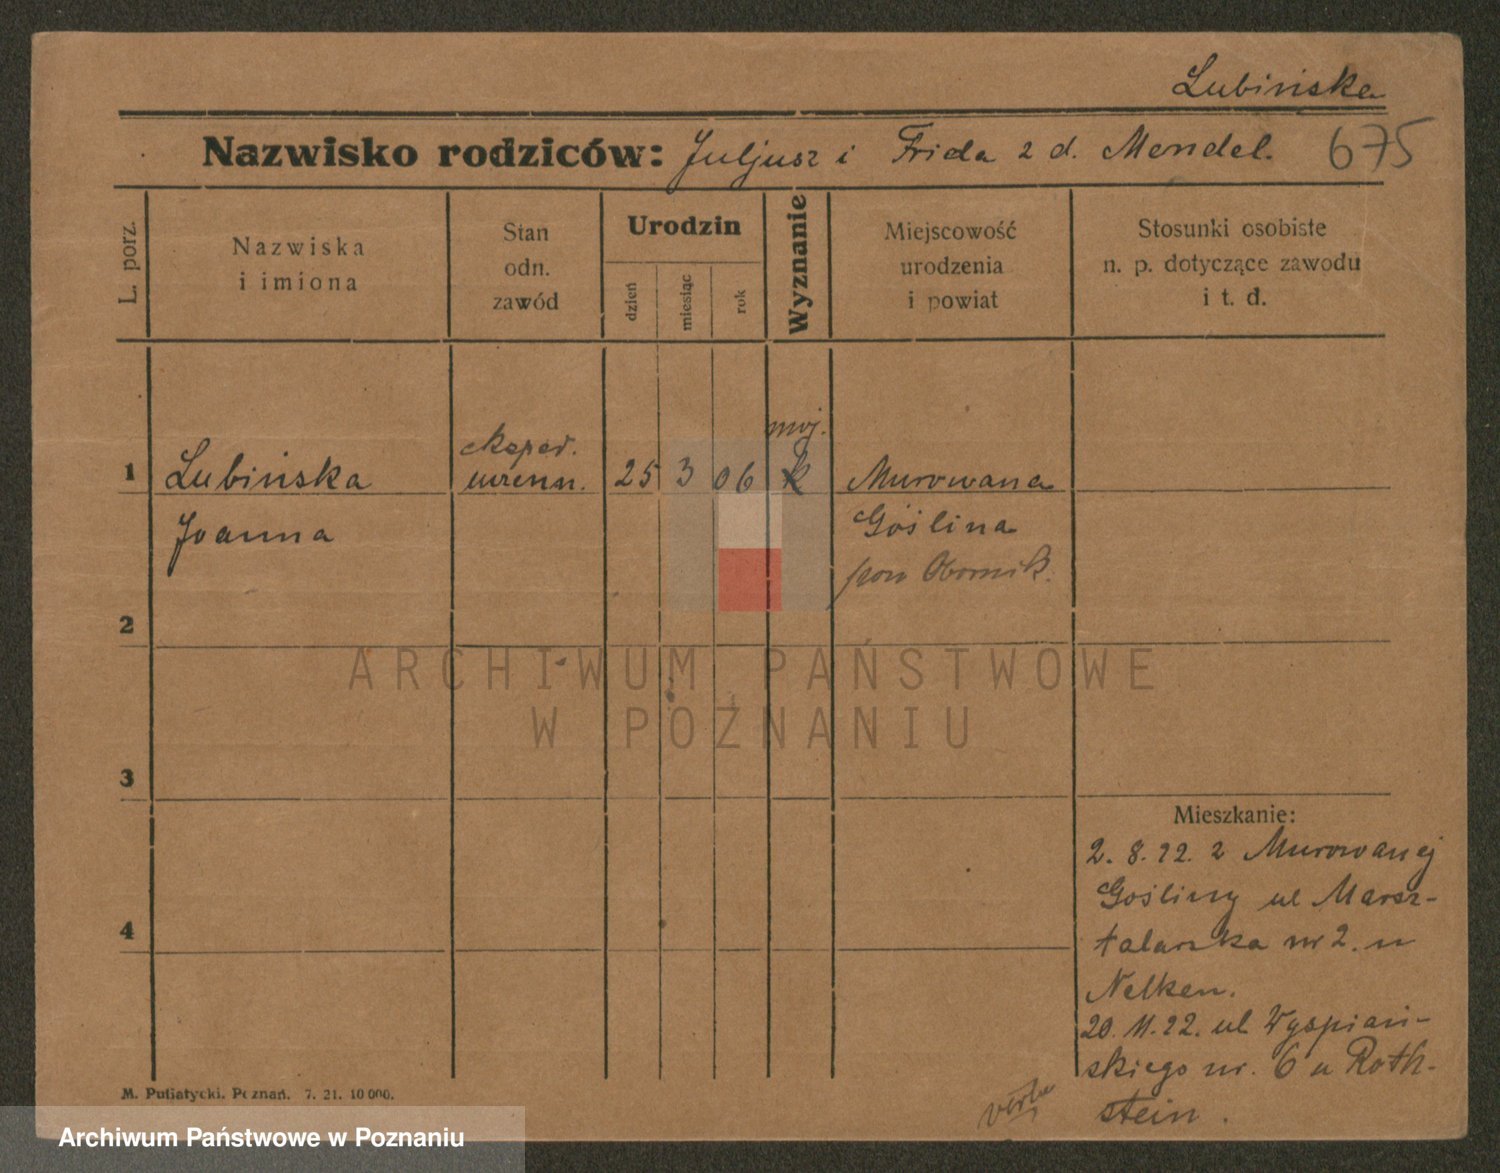 Lubińska
Nazwisko rodziców: Juljusz i Frida z d. Mendel.
675
L. porz.
Nazwiska
i imiona
Stan
odn.
zawód
Urodzin
dzień
miesiąc
rok
Wyznanie
Miejscowość
urodzenia
i powiat
Stosunki osobiste
n. p. dotyczące zawodu
i t. d.
1
Lubińska
Joanna
eksped.
uczenn.
25 3 06
moj.
k
Murowana
Goślina
pow Obornik.
2
3
4
ARCHIWUM PAŃSTWOWE
W POZNANIU
Mieszkanie:
2. 8. 22. z Murowanej
Gośliny ul Marsz-
talarska nr 2. u
Nelken.
20. 11. 22. ul Wyspiań-
skiego nr. 6 u Roth-
stein.
M. Putiatycki, Poznań. 7. 21. 10 000.
Archiwum Państwowe w Poznaniu